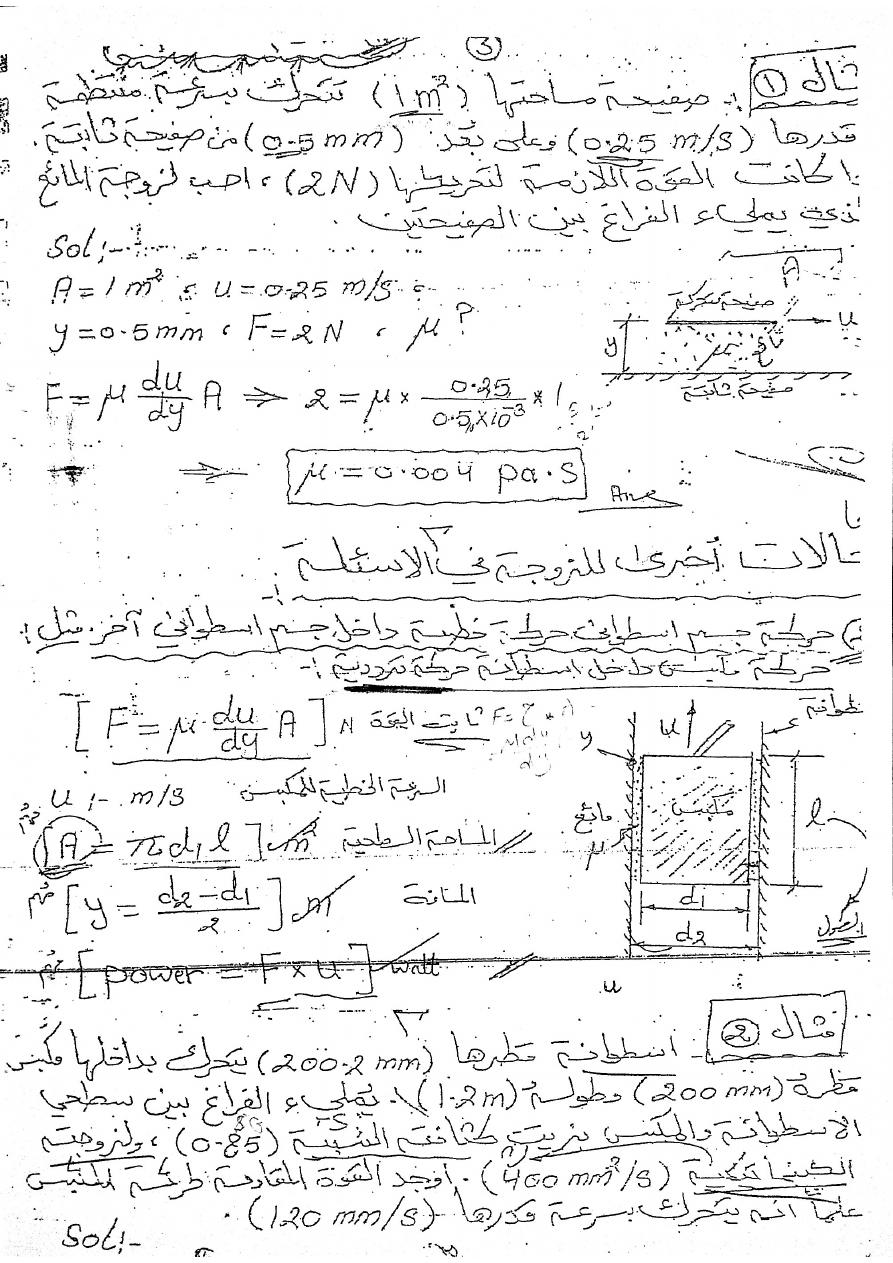 (3)
مثال (1) :- صفيحة مساحتها (1m²) تتحرك بسرعة منتظمة
قدرها (0.25 m/s) وعلى بعد (0.5 mm) من صفيحة ثابتة.
اذا كانت القوة اللازمة لتحريكها (2N)، احسب لزوجة المائع
الذي يملىء الفراغ بين الصفيحتين.
Sol:-
A = 1 m² ، u = 0.25 m/s ،
y = 0.5 mm ، F = 2 N ، μ ?
F = μ du/dy A ⇒ 2 = μ × 0.25/0.5×10⁻³ * 1
⇒ μ = 0.004 pa.s Ans
A
صفيحة متحركة
u
y
μ مائع
صفيحة ثابتة
حالات أخرى للزوجة في الاسئلة :-
حركة جسم اسطواني حركة خطية داخل جسم اسطواني آخر. مثل :
حركة مكبس داخل اسطوانة حركة ترددية :-
[F = μ. du/dy A] N
u :- m/s السرعة الخطية للمكبس
[A = π d₁ l] m² المساحة السطحية
[y = d₂ - d₁ / 2] m
[power = F × u] watt
y
u
مكبس
مائع
μ
l
الطول
d₁
d₂
u
مثال (2) - اسطوانة قطرها (200.2 mm) يتحرك بداخلها مكبس
قطرة (200 mm) وطولة (1.2m). يملىء الفراغ بين سطحي
الاسطوانة والمكبس بزيت كثافته النسبية (0.85)، ولزوجته
الكينماتيكية (400 mm²/s). اوجد القوة المقاومة لحركة المكبس
علماً انه يتحرك بسرعة قدرها (120 mm/s).
Sol:-